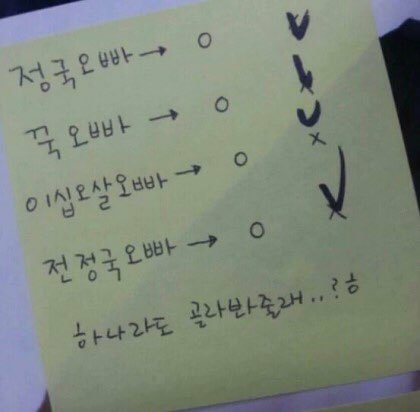 정국오빠 → o
꾹오빠 → o
이십오살오빠 → o x
전정국오빠 → o x
하나라도 골라봐줄래..?ㅎ